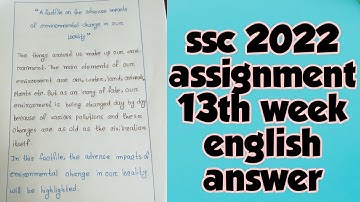 "A factfile on the adverse impacts
of environmental change in our
locality"
The things around us make up our envi-
ronment. The main elements of our
environment are air, water, land, animals,
plants etc. But as an irony of fate, our
environment is being changed day by day
because of various pollutions and these
changes are as old as the civilization
itself.
In this factfile, the adverse impacts of
environmental change in our locality
will be highlighted.
ssc 2022
assignment
13th week
english
answer